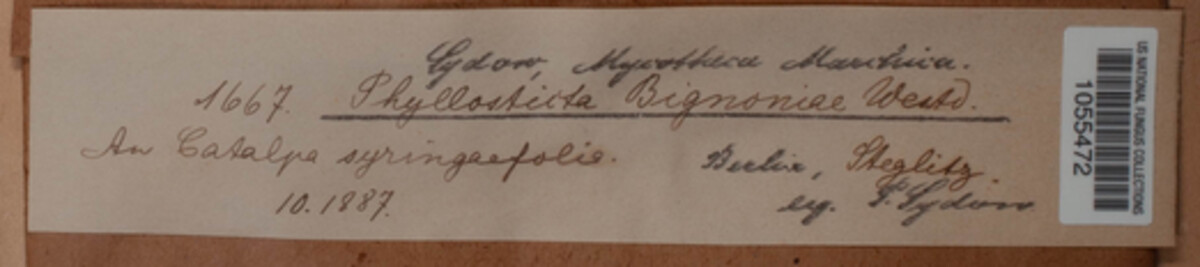 Sydow, Mycotheca Marchica.
1667. Phyllosticta Bignoniae Westd.
An Catalpa syringaefolia.
Berlin, Steglitz.
10.1887.
leg. P. Sydow
US NATIONAL FUNGUS COLLECTIONS
1055472